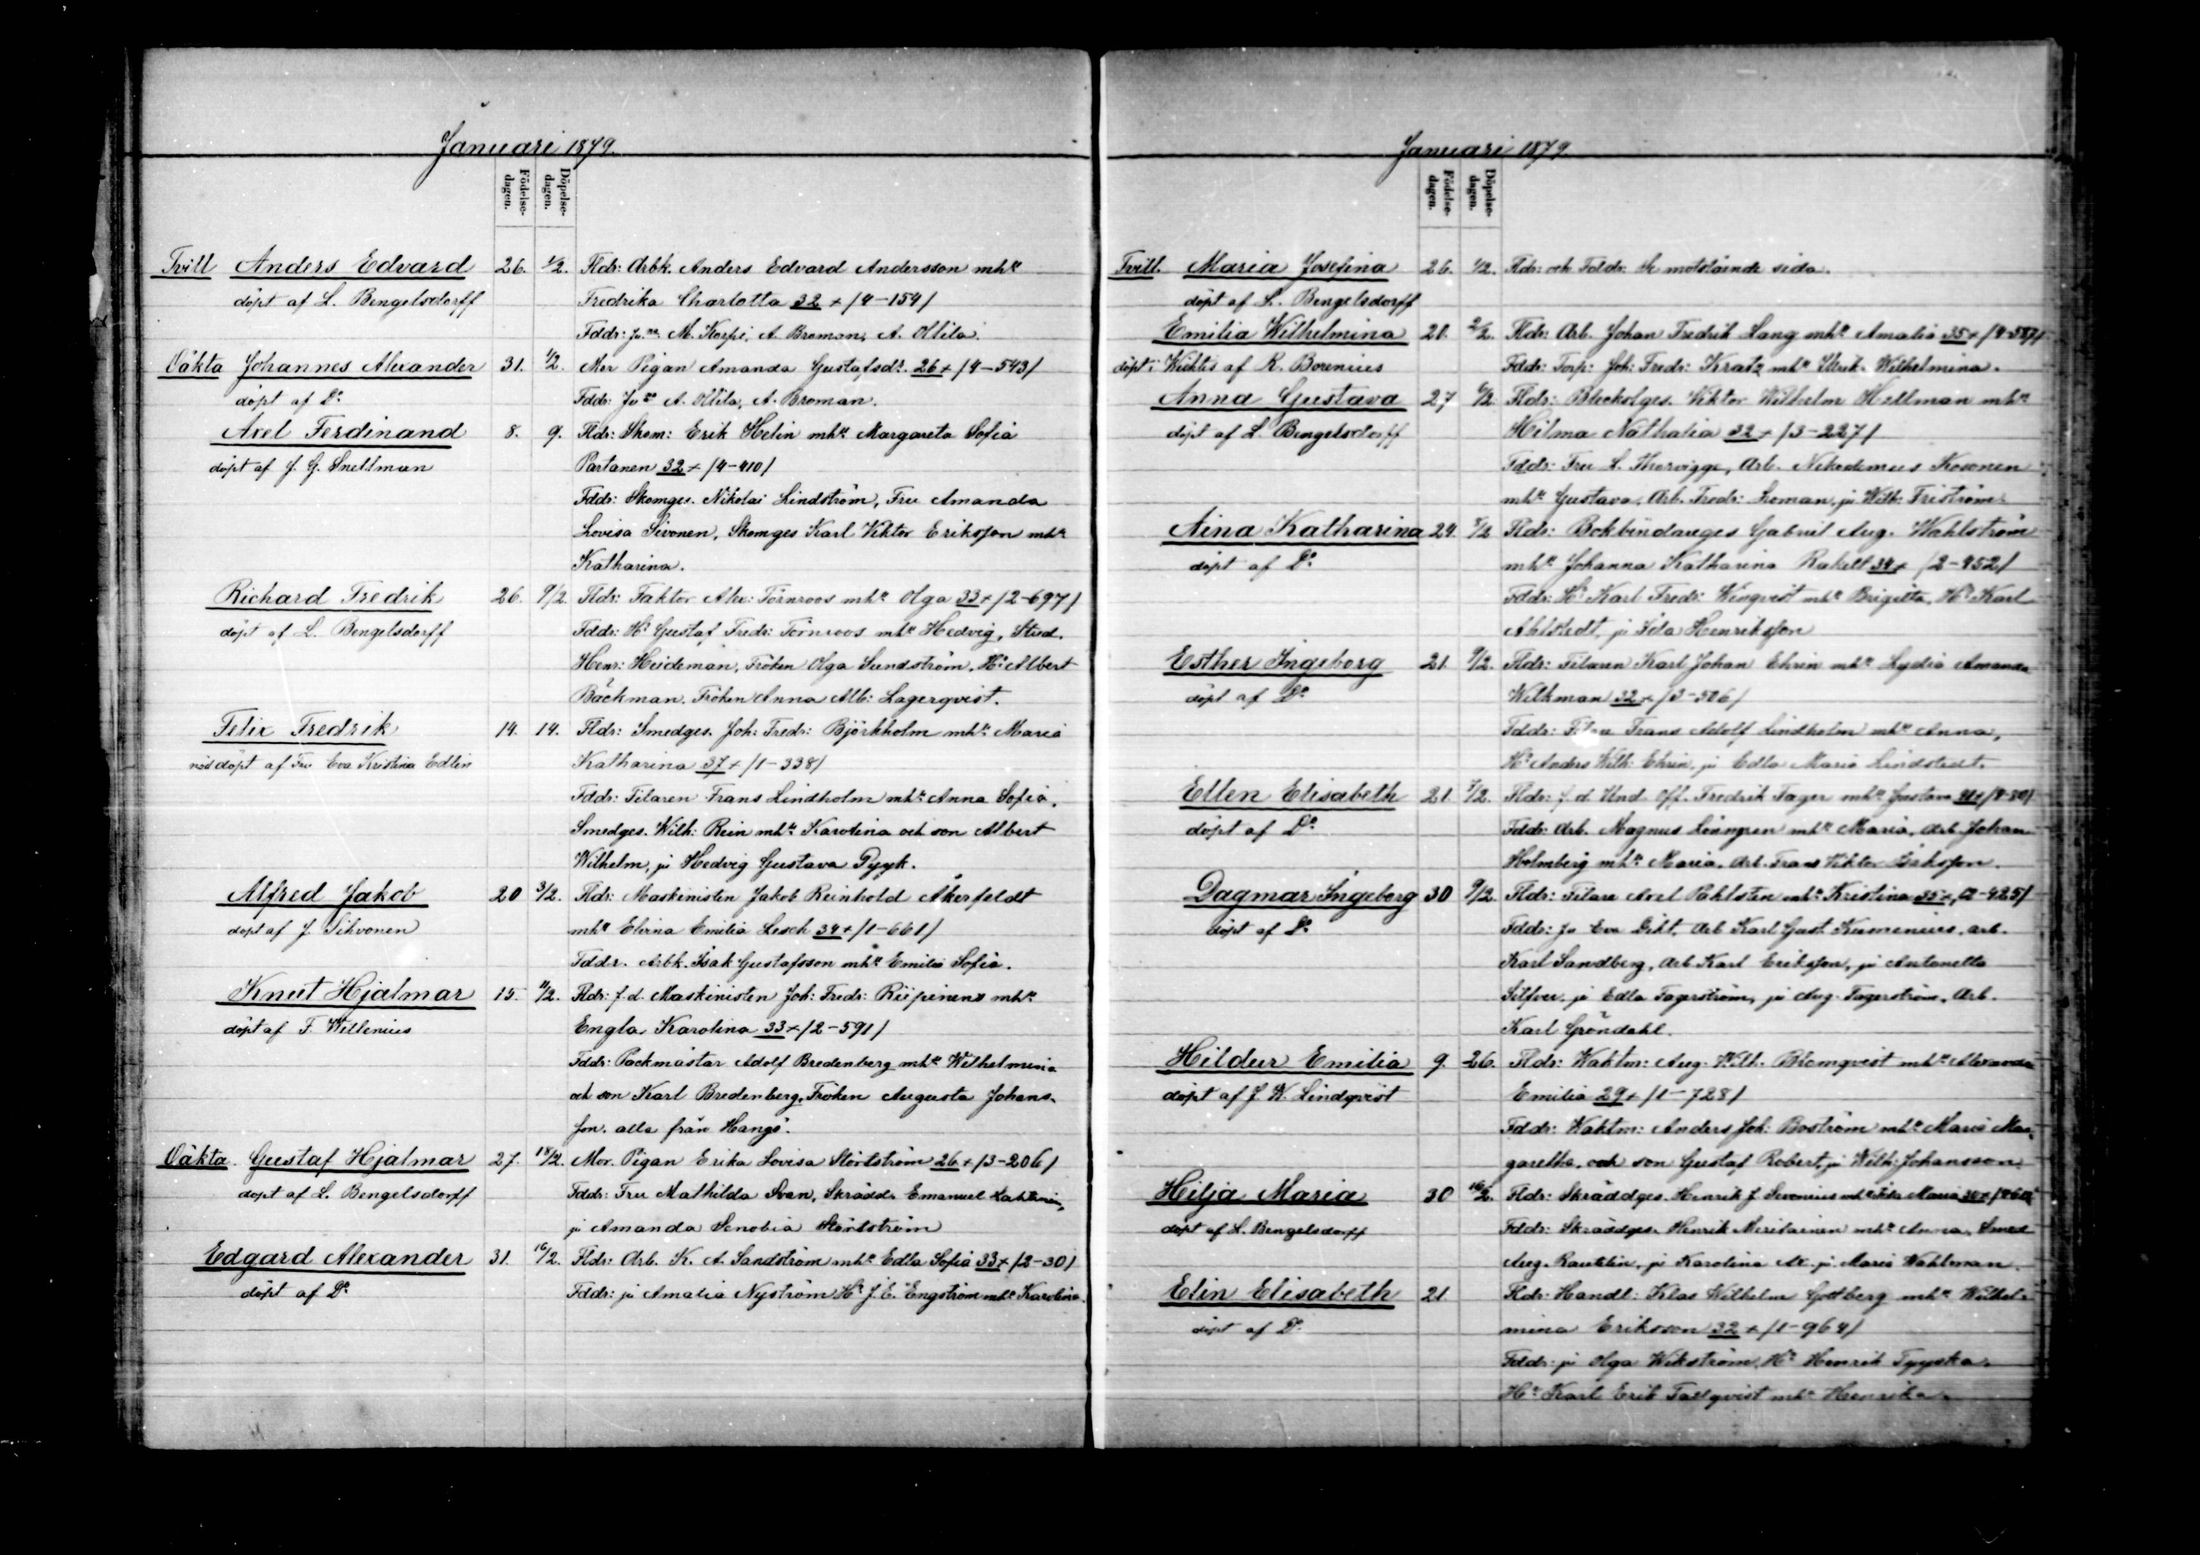 Januari 1879.
Födelse-dagen.
Döpelse-dagen.
Tvill Anders Edvard 26. 1/2. Fldr: Arbk. Anders Edvard Andersson mhu
döpt af L. Bengelsdorff Fredrika Charlotta 32 + /4-154/
Fddr: Jnne M. Korpi, A. Broman, A. Ollila.
Oäkta Johannes Alexander 31. 1/2. Mor Pigan Amanda Gustafsdr. 26 + /4-543/
döpt af Do Fddr: A. Ollila, A. Broman.
Axel Ferdinand 8. 9. Fldr: Skom: Erik Helin mhu Margareta Sofia
döpt af J. G. Snellman Partanen 32 + /4-410/
Fddr: Skomges. Nikolai Lindström, Fru Amanda
Lovisa Sivonen, Skomges Karl Viktor Eriksson mhu
Katharina.
Richard Fredrik 26. 9/2. Fldr: Faktor Alex: Törnroos mhu Olga 33 + /2-697/
döpt af L. Bengelsdorff Fddr: Hr Gustaf Fredr: Törnroos mhu Hedvig, Stud.
Henr: Heideman, Fröken Olga Sundström, Hr Albert
Bäckman, Fröken Anna Alb: Lagerqvist.
Felix Fredrik 14. 14. Fldr: Smedges. Joh: Fredr: Björkholm mhu Maria
nöddöpt af Fru Eva Kristina Edlin Katharina 37 + /1-338/
Fddr: Filaren Frans Lindholm mhu Anna Sofia,
Smedges. Wilh: Rein mhu Karolina och son Albert
Wilhelm, ju Hedvig Gustava Pyyk.
Alfred Jakob 20 3/2. Fldr: Maskinisten Jakob Reinhold Åkerfeldt
döpt af J. Sihvonen mhu Elvina Emilia Lesch 34 + /1-661/
Fddr. Arbk. Isak Gustafsson mhu Emilia Sofia.
Knut Hjalmar 15. 11/2. Fldr: f.d. Maskinisten Joh: Fredr: Riipinen mhu
döpt af F. Willenius Engla Karolina 33 + /2-591/
Fddr: Packmästar Adolf Bredenberg mhu Wilhelmina
och son Karl Bredenberg, Fröken Augusta Johans-
son, alla från Hangö.
Oäkta Gustaf Hjalmar 27. 18/2. Mor. Pigan Erika Lovisa Störtström 26 + /3-206/
döpt af L. Bengelsdorff Fddr: Fru Mathilda Svan, Skrädd. Emanuel
ju Amanda Senobia Störtström
Edgard Alexander 31. 16/2. Fldr: Arb. K. A. Sandström mhu Edla Sofia 33 + /2-30/
döpt af Do Fddr: ju Amalia Nyström Hr J. E. Engström mhu Karolina.
Januari 1879
Födelse-dagen.
Döpelse-dagen.
Tvill. Maria Josefina 26. 1/2. Fldr: och Fddr: Se motstående sida.
döpt af L. Bengelsdorff
Emilia Wilhelmina 21. 2/2. Fldr: Arb. Johan Fredrik Lang mhu Amalia 35 +
döpt i Wichtis af R. Borenius Fddr: Torp: Joh: Fredr: Kratz mhu Ulrik. Wilhelmina.
Anna Gustava 27 9/2. Fldr: Bleckslges. Viktor Wilhelm Hellman mhu
döpt af L. Bengelsdorff Hilma Nathalia 32 + /3-227/
Fddr: Fru L. Thorvigge, Arb. Nikodemus Kosonen
mhu Gustava, Arb. Fredr: Loman, ju Wilh: Friström.
Aina Katharina 24. 8/2 Fldr: Bokbindareges Gabriel Aug. Wahlström
döpt af Do mhu Johanna Katharina Rakell 34 + /2-452/
Fddr: Hr Karl Fredr: Winqvist mhu Brigitta, Hr Karl
Ahlstedt, ju Ida Henriksson
Esther Ingeborg 21. 9/2. Fldr: Filaren Karl Johan Ehrin mhu Lydia Amanda
döpt af Do Wilkman 32 + /3-506/
Fddr: Frans Adolf Lindholm mhu Anna,
Hr Anders Wilh: Ehrin, ju Edla Maria Lindstedt.
Ellen Elisabeth 21. 7/2. Fldr: f.d. Und. Off. Fredrik Tager mhu Gustava
döpt af Do Fddr: Arb. Magnus Lönngren mhu Maria, Arb. Johan
Holmberg mhu Maria, Arb. Frans Viktor Isaksson.
Dagmar Ingeborg 30 9/2. Fldr: Filare Axel Pahlsten mhu Kristina 35 + /2-425/
döpt af Do Fddr: Ju Eva Dikt, Arb Karl Gust. Kumenius, arb.
Karl Sandberg, Arb Karl Eriksson, ju Antonetta
Silfver, ju Edla Fagerström, ju Aug. Fagerström, Arb.
Karl Gröndahl.
Hildur Emilia 9. 26. Fldr: Waktm: Aug. Wilh. Blomqvist mhu Alexandra
döpt af J. W. Lindqvist Emilia 29 + /1-728/
Fddr: Waktm: Anders Joh: Boström mhu Maria Mar-
garetha, och son Gustaf Robert, ju Wilh: Johansson
Hilja Maria 30 16/2. Fldr: Skräddges. Henrik J. Sivonius mhu Maria
döpt af L. Bengelsdorff Fddr: Skräddges. Henrik Meriläinen mhu Anna, Smed
Aug. ju Karolina ju Maria Wahlman.
Elin Elisabeth 21. Fldr: Handl: Klas Wilhelm Gottberg mhu Wilhel-
döpt af Do mina Eriksson 32 + /1-964/
Fddr: ju Olga Wikström, Hr Henrik Tyyska.
Hr Karl Erik Tallqvist mhu Henrika.